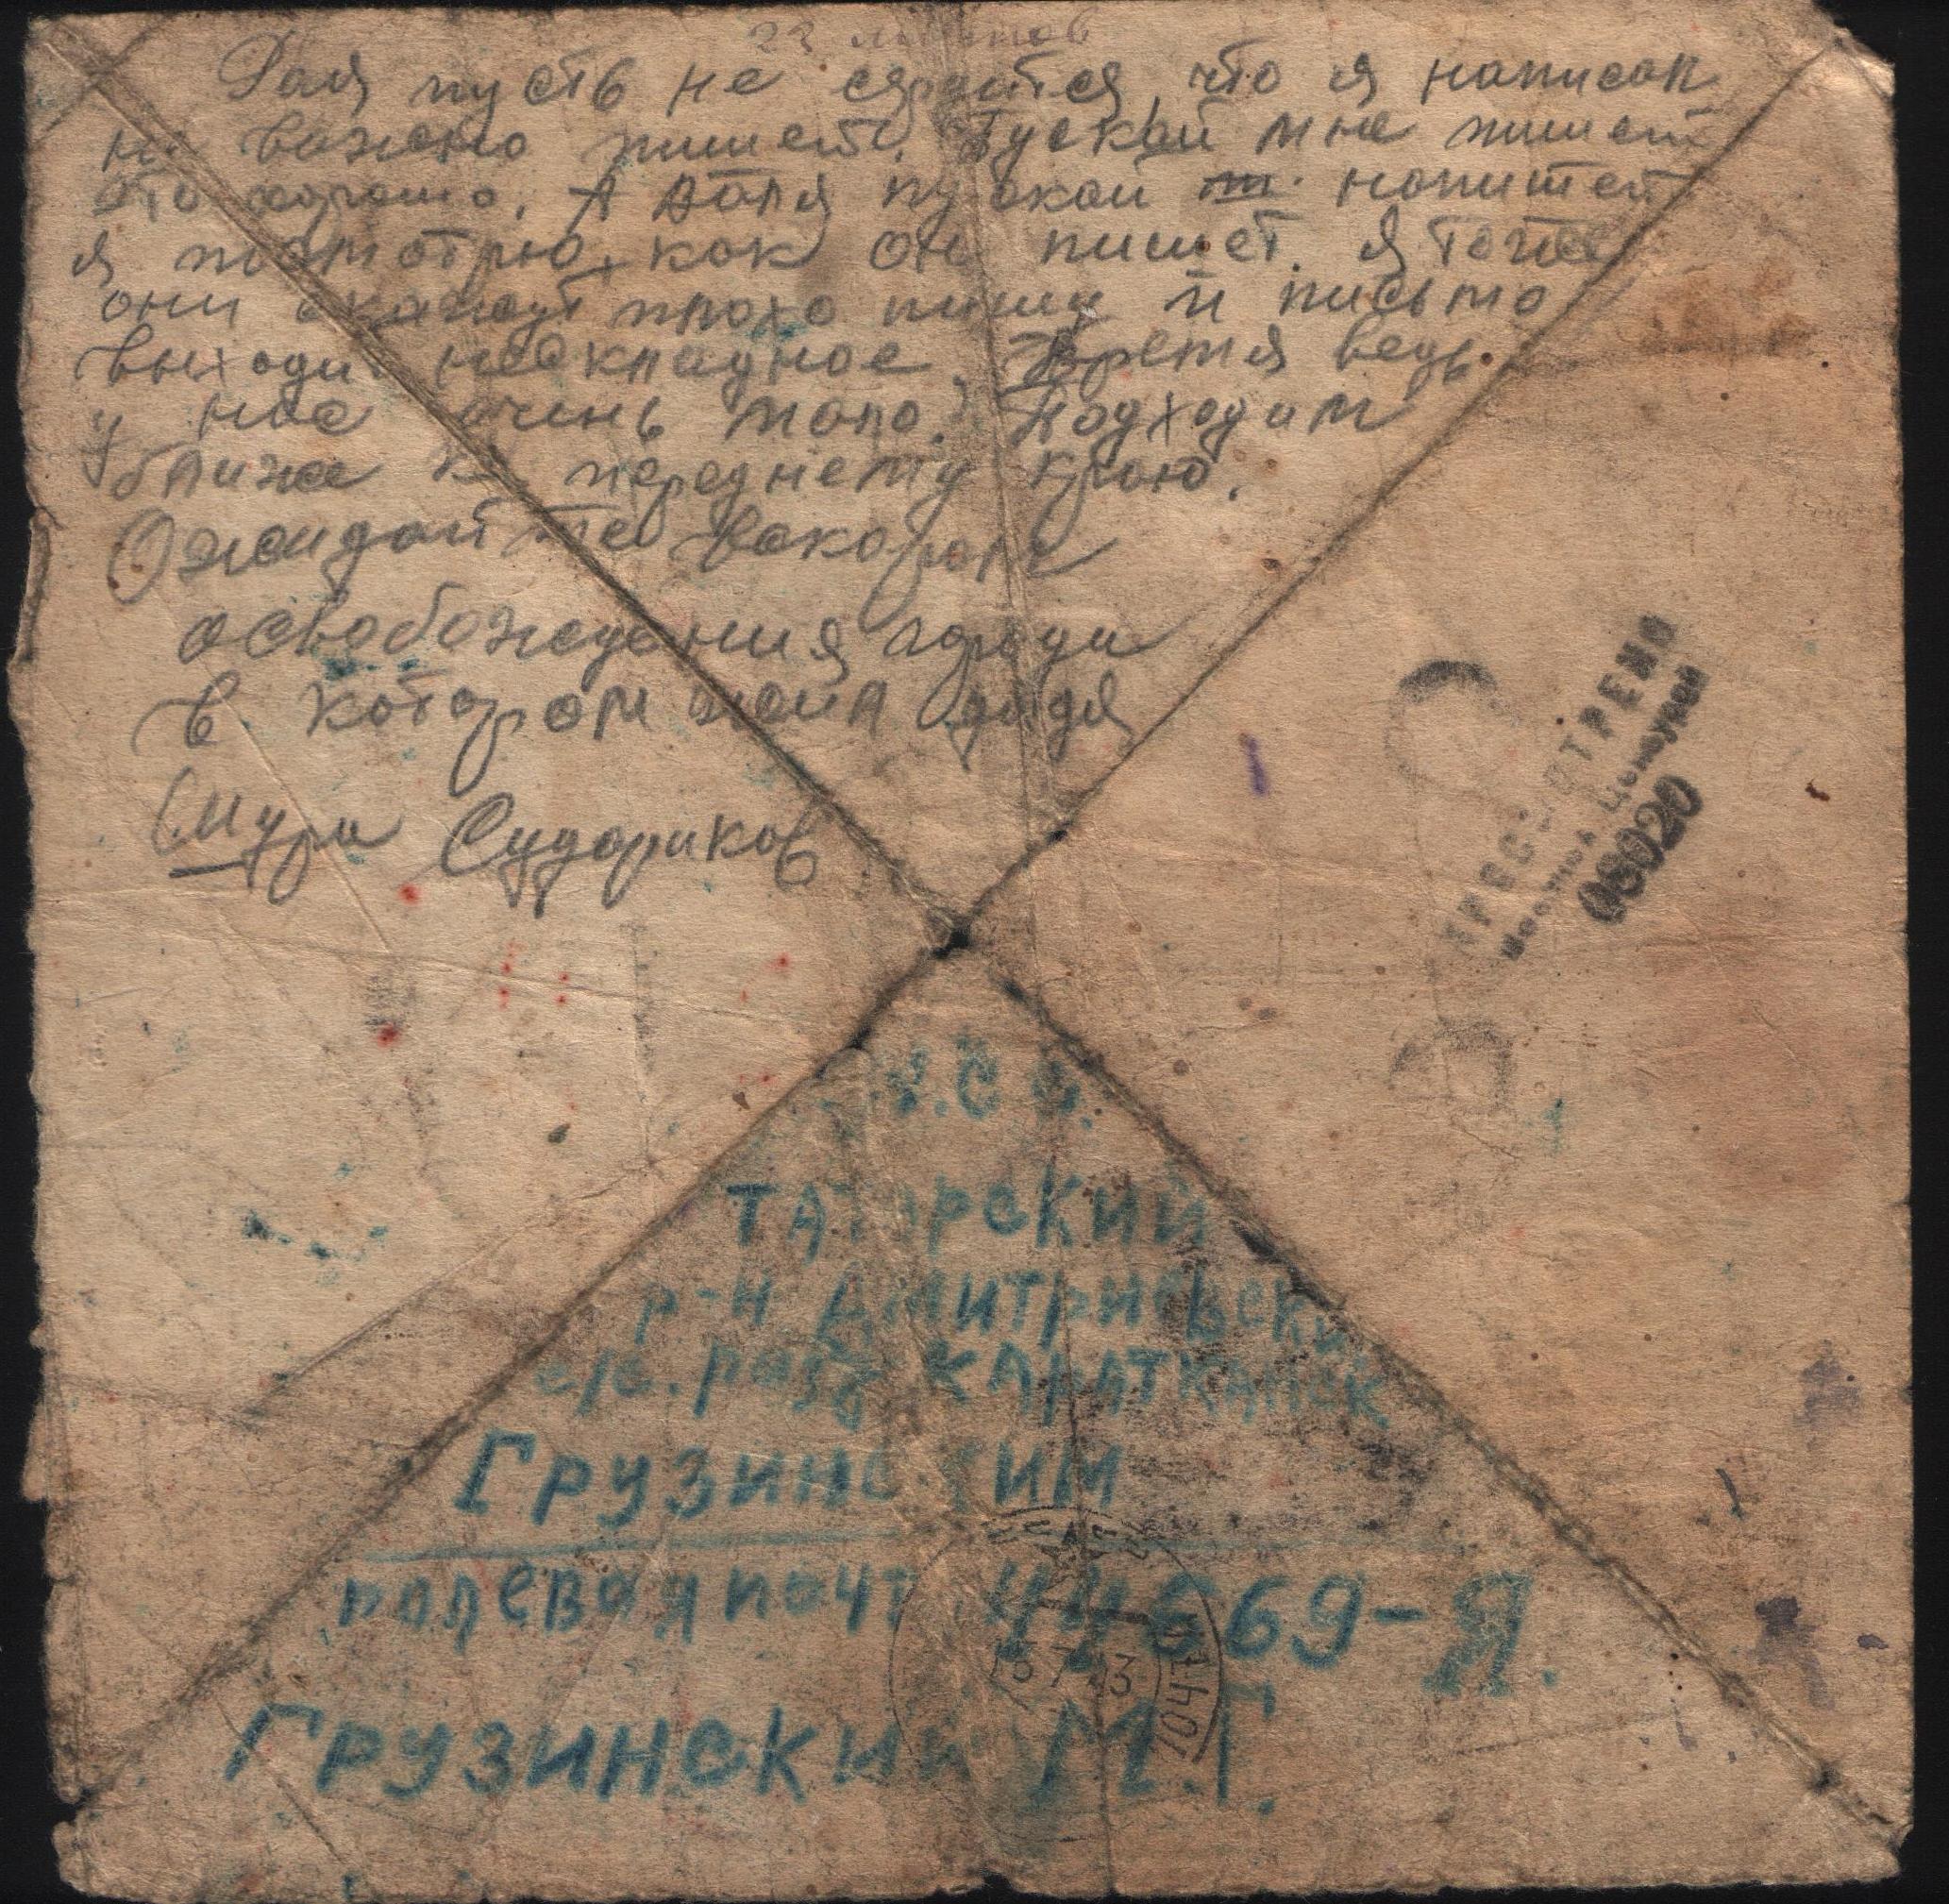 23 листов
Рая пусть не сердится, что я написал
не важно пишет. Пускай мне пишет
это хорошо. А Воля пускай напишет
я посмотрю как он пишет. Я тоже
они скажут плохо пишу и письмо
выходит нескладное. Время ведь
у нас очинь мало. Подходим
ближе к переднему краю.
Ожидайте вскоре
освобождения города
в котором жил дядя
Шура Судариков
ПРОСМОТРЕНО
Военной Цензурой
08020
Татарский
р-н Дмитриевский
с/с. разд Каратканск
Грузинским
полевая почт 44669-Я.
15 7 43
Грузинский М.Г.